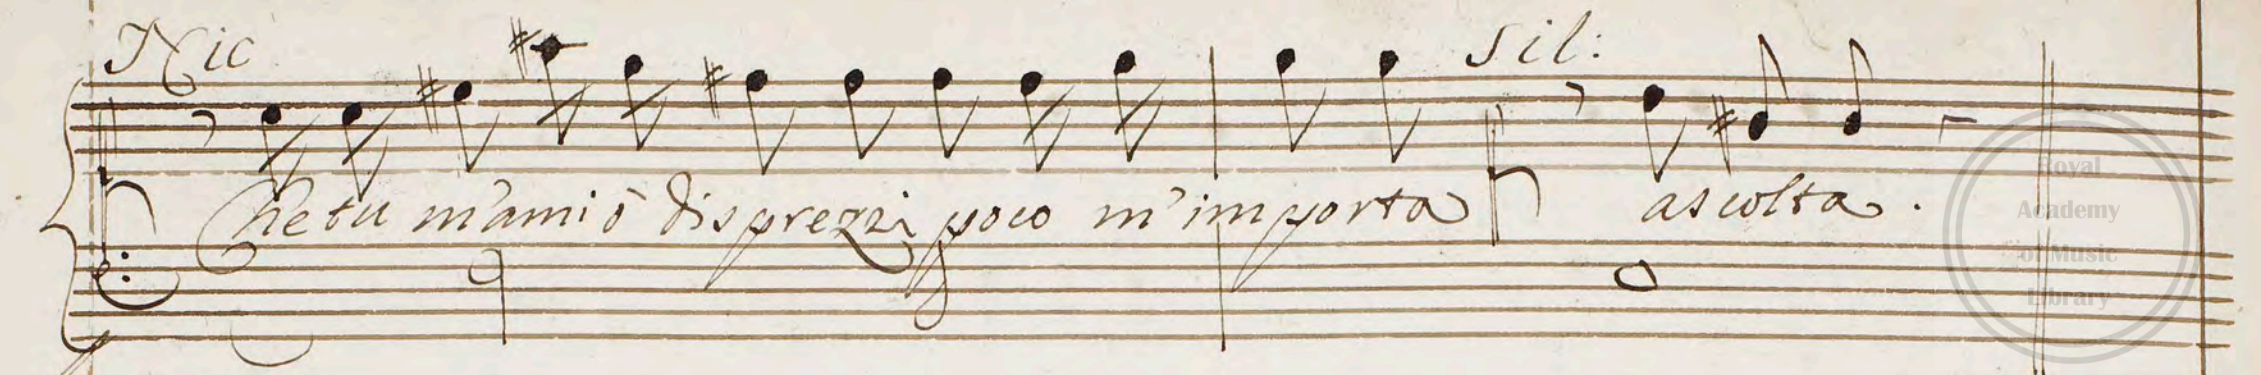 Nic Sil:
Che tu m'ami ò disprezzi poco m'importa ascolta.
Royal
Academy
of Music
Library